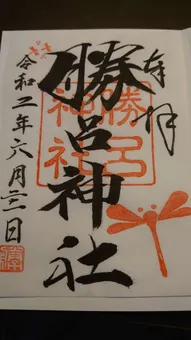 奉拝
勝呂神社
勝呂神社
令和二年六月二日